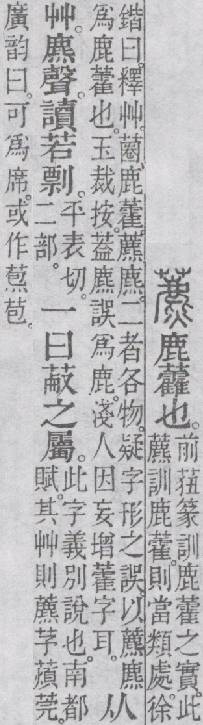 藨鹿藿也。前莥篆訓鹿藿之實。此
藨訓鹿藿。則當類處。徐
鍇曰。釋艸。蔨。鹿藿。藨。麃。二者各物。疑字形之誤。以藨麃
爲鹿藿也。玉裁按。葢麃誤爲鹿。淺人因妄增藿字耳。从
艸。麃聲。讀若剽。平表切。二部。一曰蔽之屬。此字義別說也。南都
賦。其艸則藨芧薠莞。
廣韵曰。可爲席。或作藨苞。